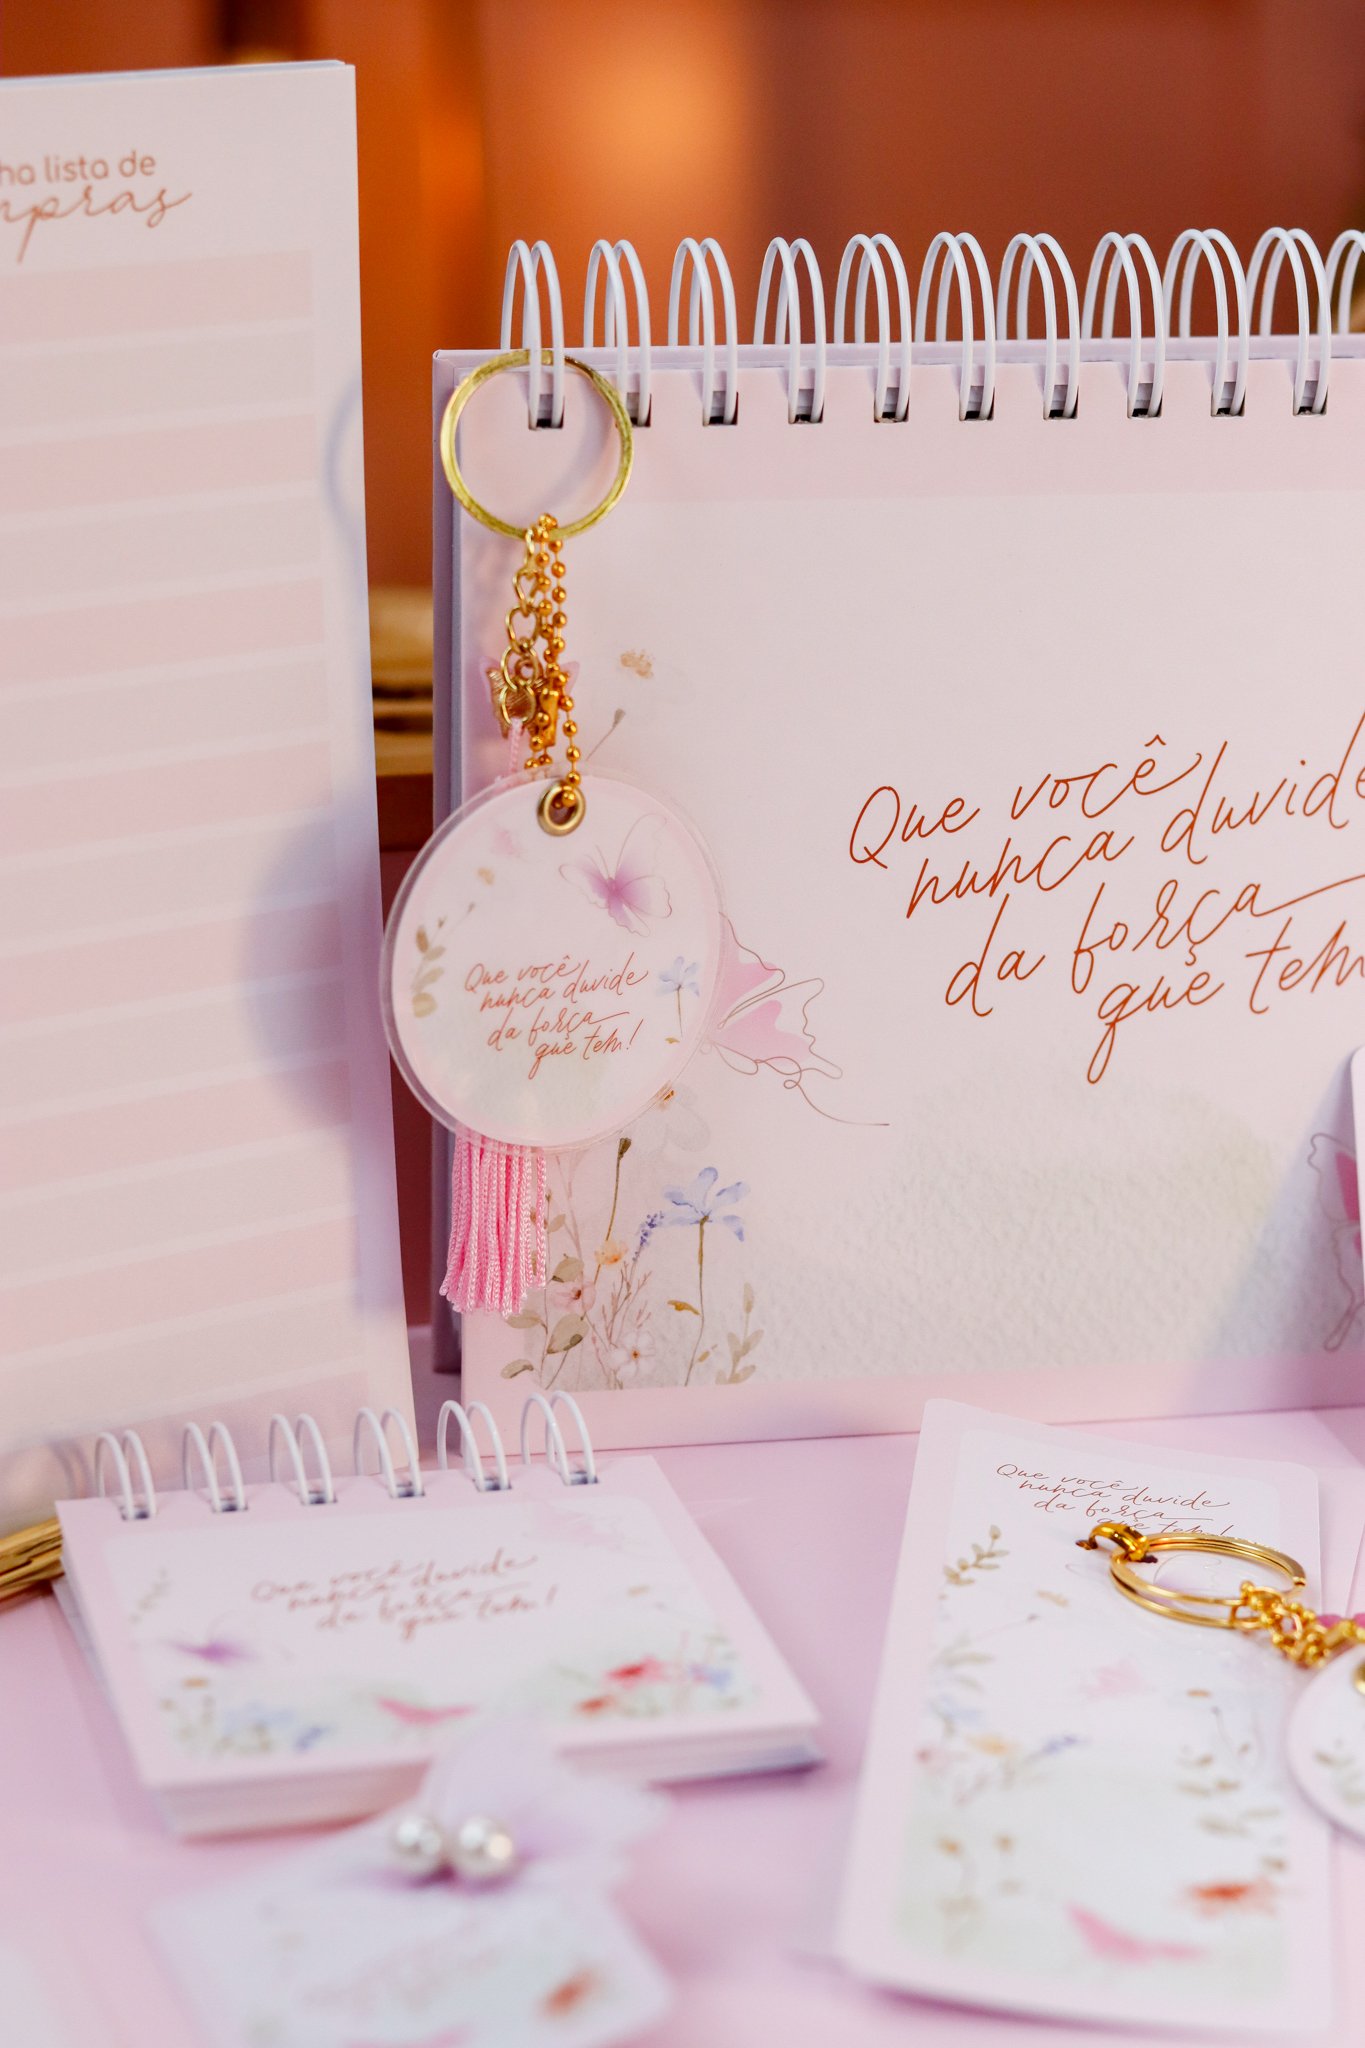 ha lista de
mpras
Que você
nunca duvide
da força
que tem
Que você
nunca duvide
da força
que tem!
Que você
nunca duvide
da força
que tem!
Que você
nunca duvide
da força
que tem!